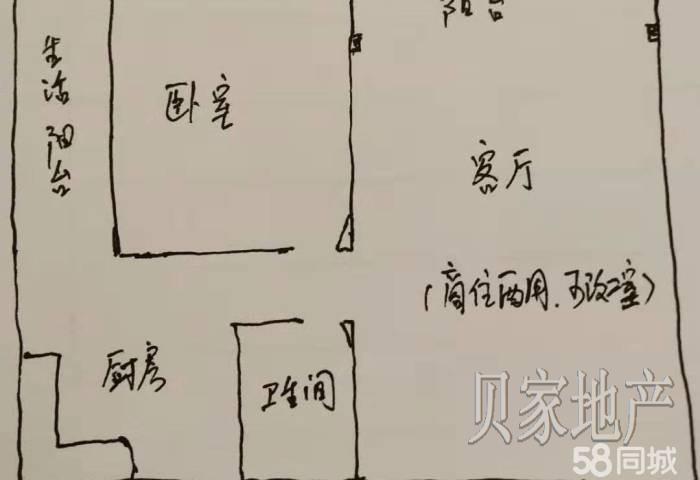 阳台
生活阳台
卧室
客厅
(商住两用、可改2室)
厨房
卫生间
贝家地产
58同城